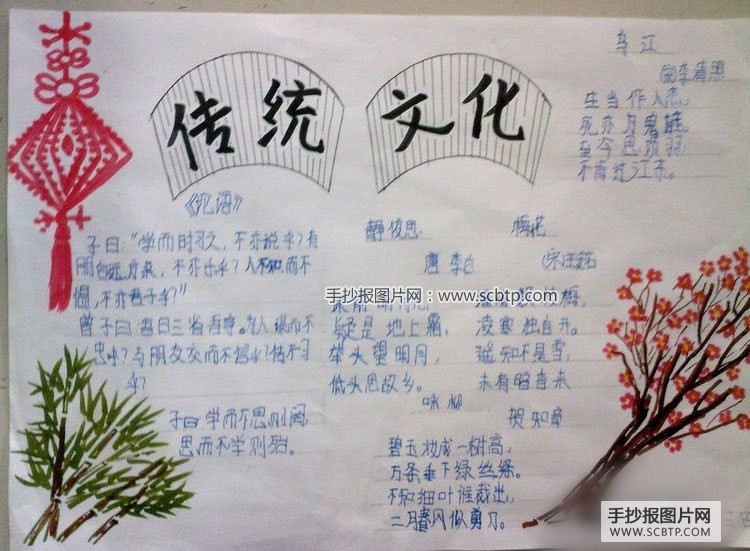 传统 文化
《论语》
子曰:“学而时习文,不亦说乎?有
朋自远方来,不亦乐乎?人不知而不
愠,不亦君子乎?”
曾子曰:吾日三省吾身。为人谋而不
忠乎?与朋友交而不信乎?传不习
乎?
子曰:学而不思则罔,
思而不学则殆。
静夜思
唐 李白
疑是 地上霜,
举头望明月,
低头思故乡。
梅花
宋王安石
凌寒独自开。
遥知不是雪,
未有暗香来
咏柳
贺知章
碧玉妆成一树高,
万条垂下绿丝绦。
不知细叶谁裁出,
二月春风似剪刀。
乌江
宋李清照
生当作人杰,
死亦为鬼雄。
至今思项羽
不肯过江东。
手抄报图片网:www.scbtp.com
手抄报图片网
WWW.SCBTP.COM